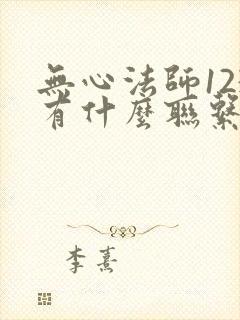 無心法師12
有什麼聯繫
李熹